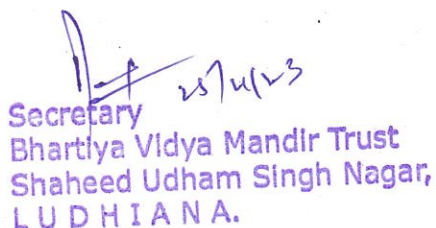 Secretary
Bhartiya Vidya Mandir Trust
Shaheed Udham Singh Nagar,
L U D H I A N A.